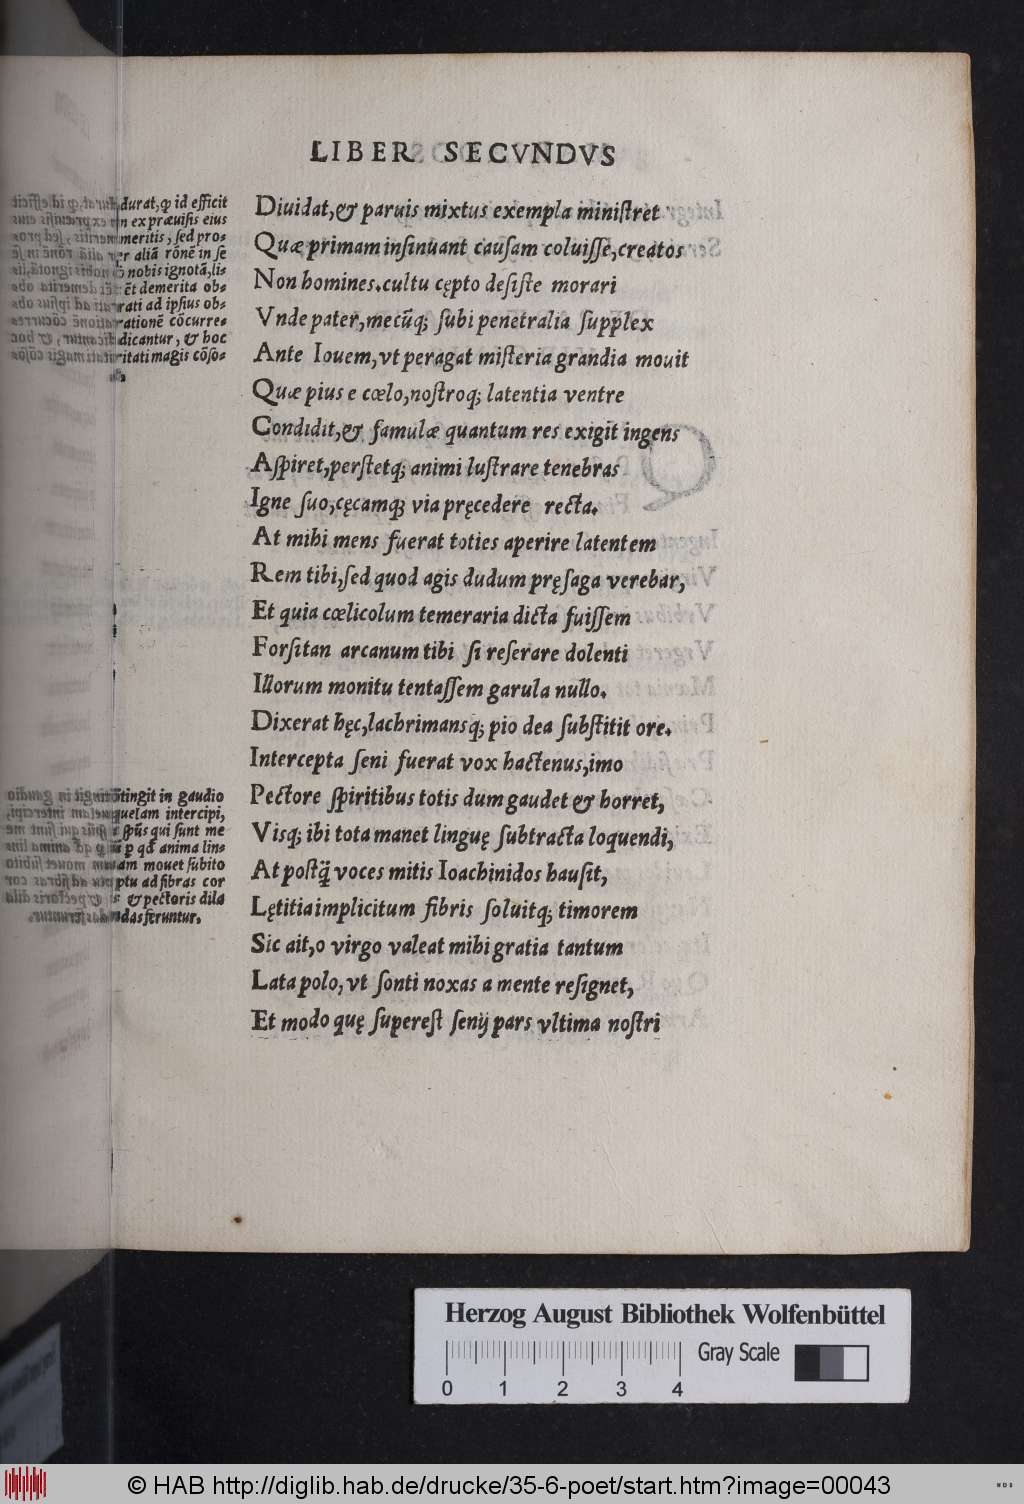 LIBER SECVNDVS
durat, ꝙ id efficit
ex præuisis eius
meritis, sed pro-
aliā rōnē in se
nobis ignotā, li-
ēt demerita ob-
rati ad ipsius ob-
rationē cōcurre-
dicantur, & hoc
ritati magis cōso-
Diuidat, & paruis mixtus exempla ministret
Quæ primam insinuant causam coluisse, creatos
Non homines. cultu cępto desiste morari
Vnde pater, mecūq; subi penetralia supplex
Ante Iouem, vt peragat misteria grandia mouit
Quæ pius e cœlo, nostroq; latentia ventre
Condidit, & famulæ quantum res exigit ingens
Aspiret, perstetq; animi lustrare tenebras
Igne suo, cęcamq; via pręcedere recta.
At mihi mens fuerat toties aperire latentem
Rem tibi, sed quod agis dudum pręsaga verebar,
Et quia cœlicolum temeraria dicta fuissem
Forsitan arcanum tibi si reserare dolenti
Illorum monitu tentassem garula nullo.
Dixerat hęc, lachrimansq; pio dea substitit ore.
Intercepta seni fuerat vox hactenus, imo
Pectore spiritibus totis dum gaudet & horret,
Visq; ibi tota manet linguę subtracta loquendi,
At postq̃ voces mitis Ioachinidos hausit,
Lętitia implicitum fibris soluitq; timorem
Sic ait, o virgo valeat mihi gratia tantum
Lata polo, vt sonti noxas a mente resignet,
Et modo quę superest senij pars vltima nostri
tingit in gaudio
quelam intercipi,
spūs qui sunt me
ꝑ qd̄ anima lin-
am mouet subito
ptu ad fibras cor
& pectoris dila
das feruntur.
Herzog August Bibliothek Wolfenbüttel
Gray Scale
0 1 2 3 4
© HAB http://diglib.hab.de/drucke/35-6-poet/start.htm?image=00043